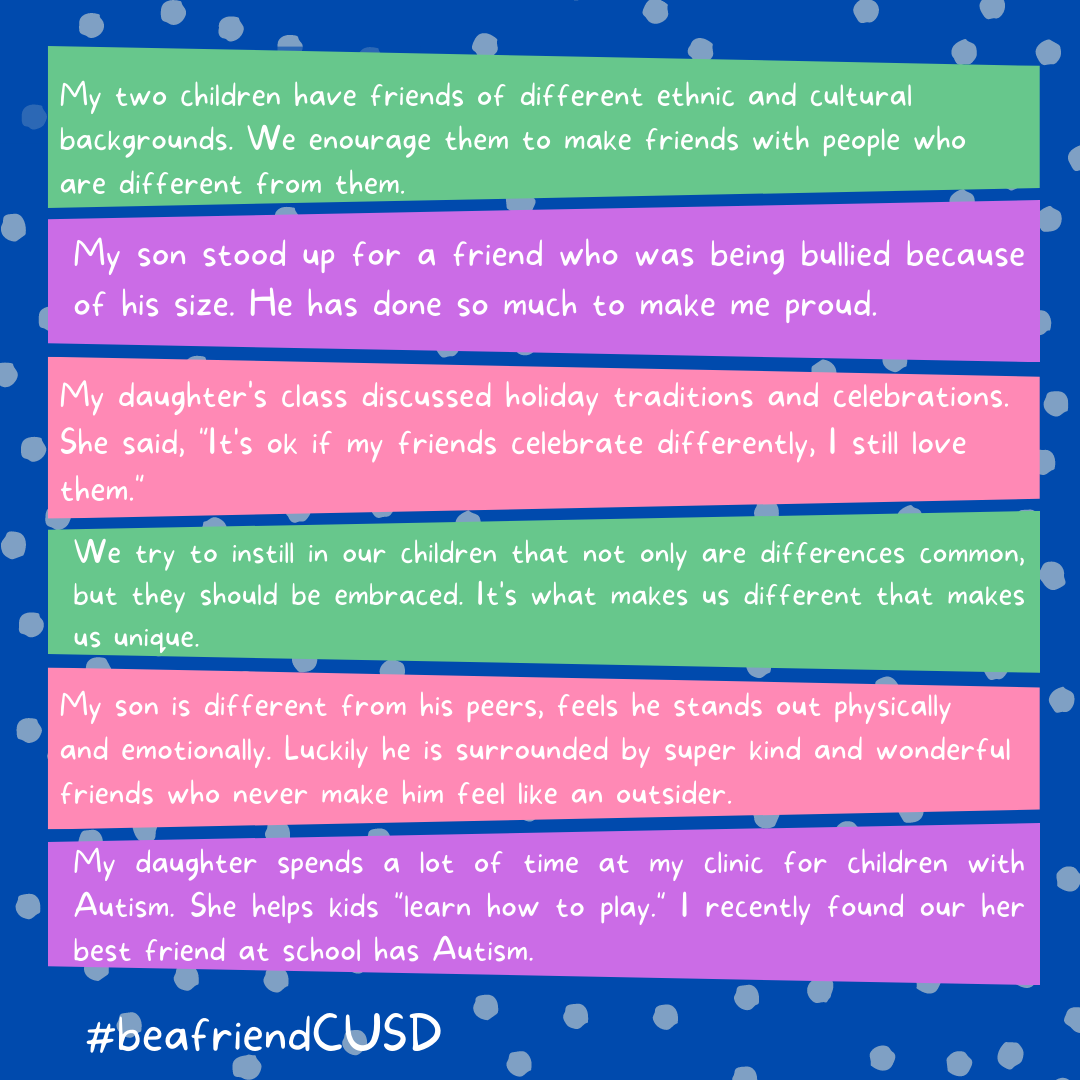 My two children have friends of different ethnic and cultural
backgrounds. We enourage them to make friends with people who
are different from them.
My son stood up for a friend who was being bullied because
of his size. He has done so much to make me proud.
My daughter's class discussed holiday traditions and celebrations.
She said, "It's ok if my friends celebrate differently, I still love
them."
We try to instill in our children that not only are differences common,
but they should be embraced. It's what makes us different that makes
us unique.
My son is different from his peers, feels he stands out physically
and emotionally. Luckily he is surrounded by super kind and wonderful
friends who never make him feel like an outsider.
My daughter spends a lot of time at my clinic for children with
Autism. She helps kids "learn how to play." I recently found our her
best friend at school has Autism.
#beafriendCUSD